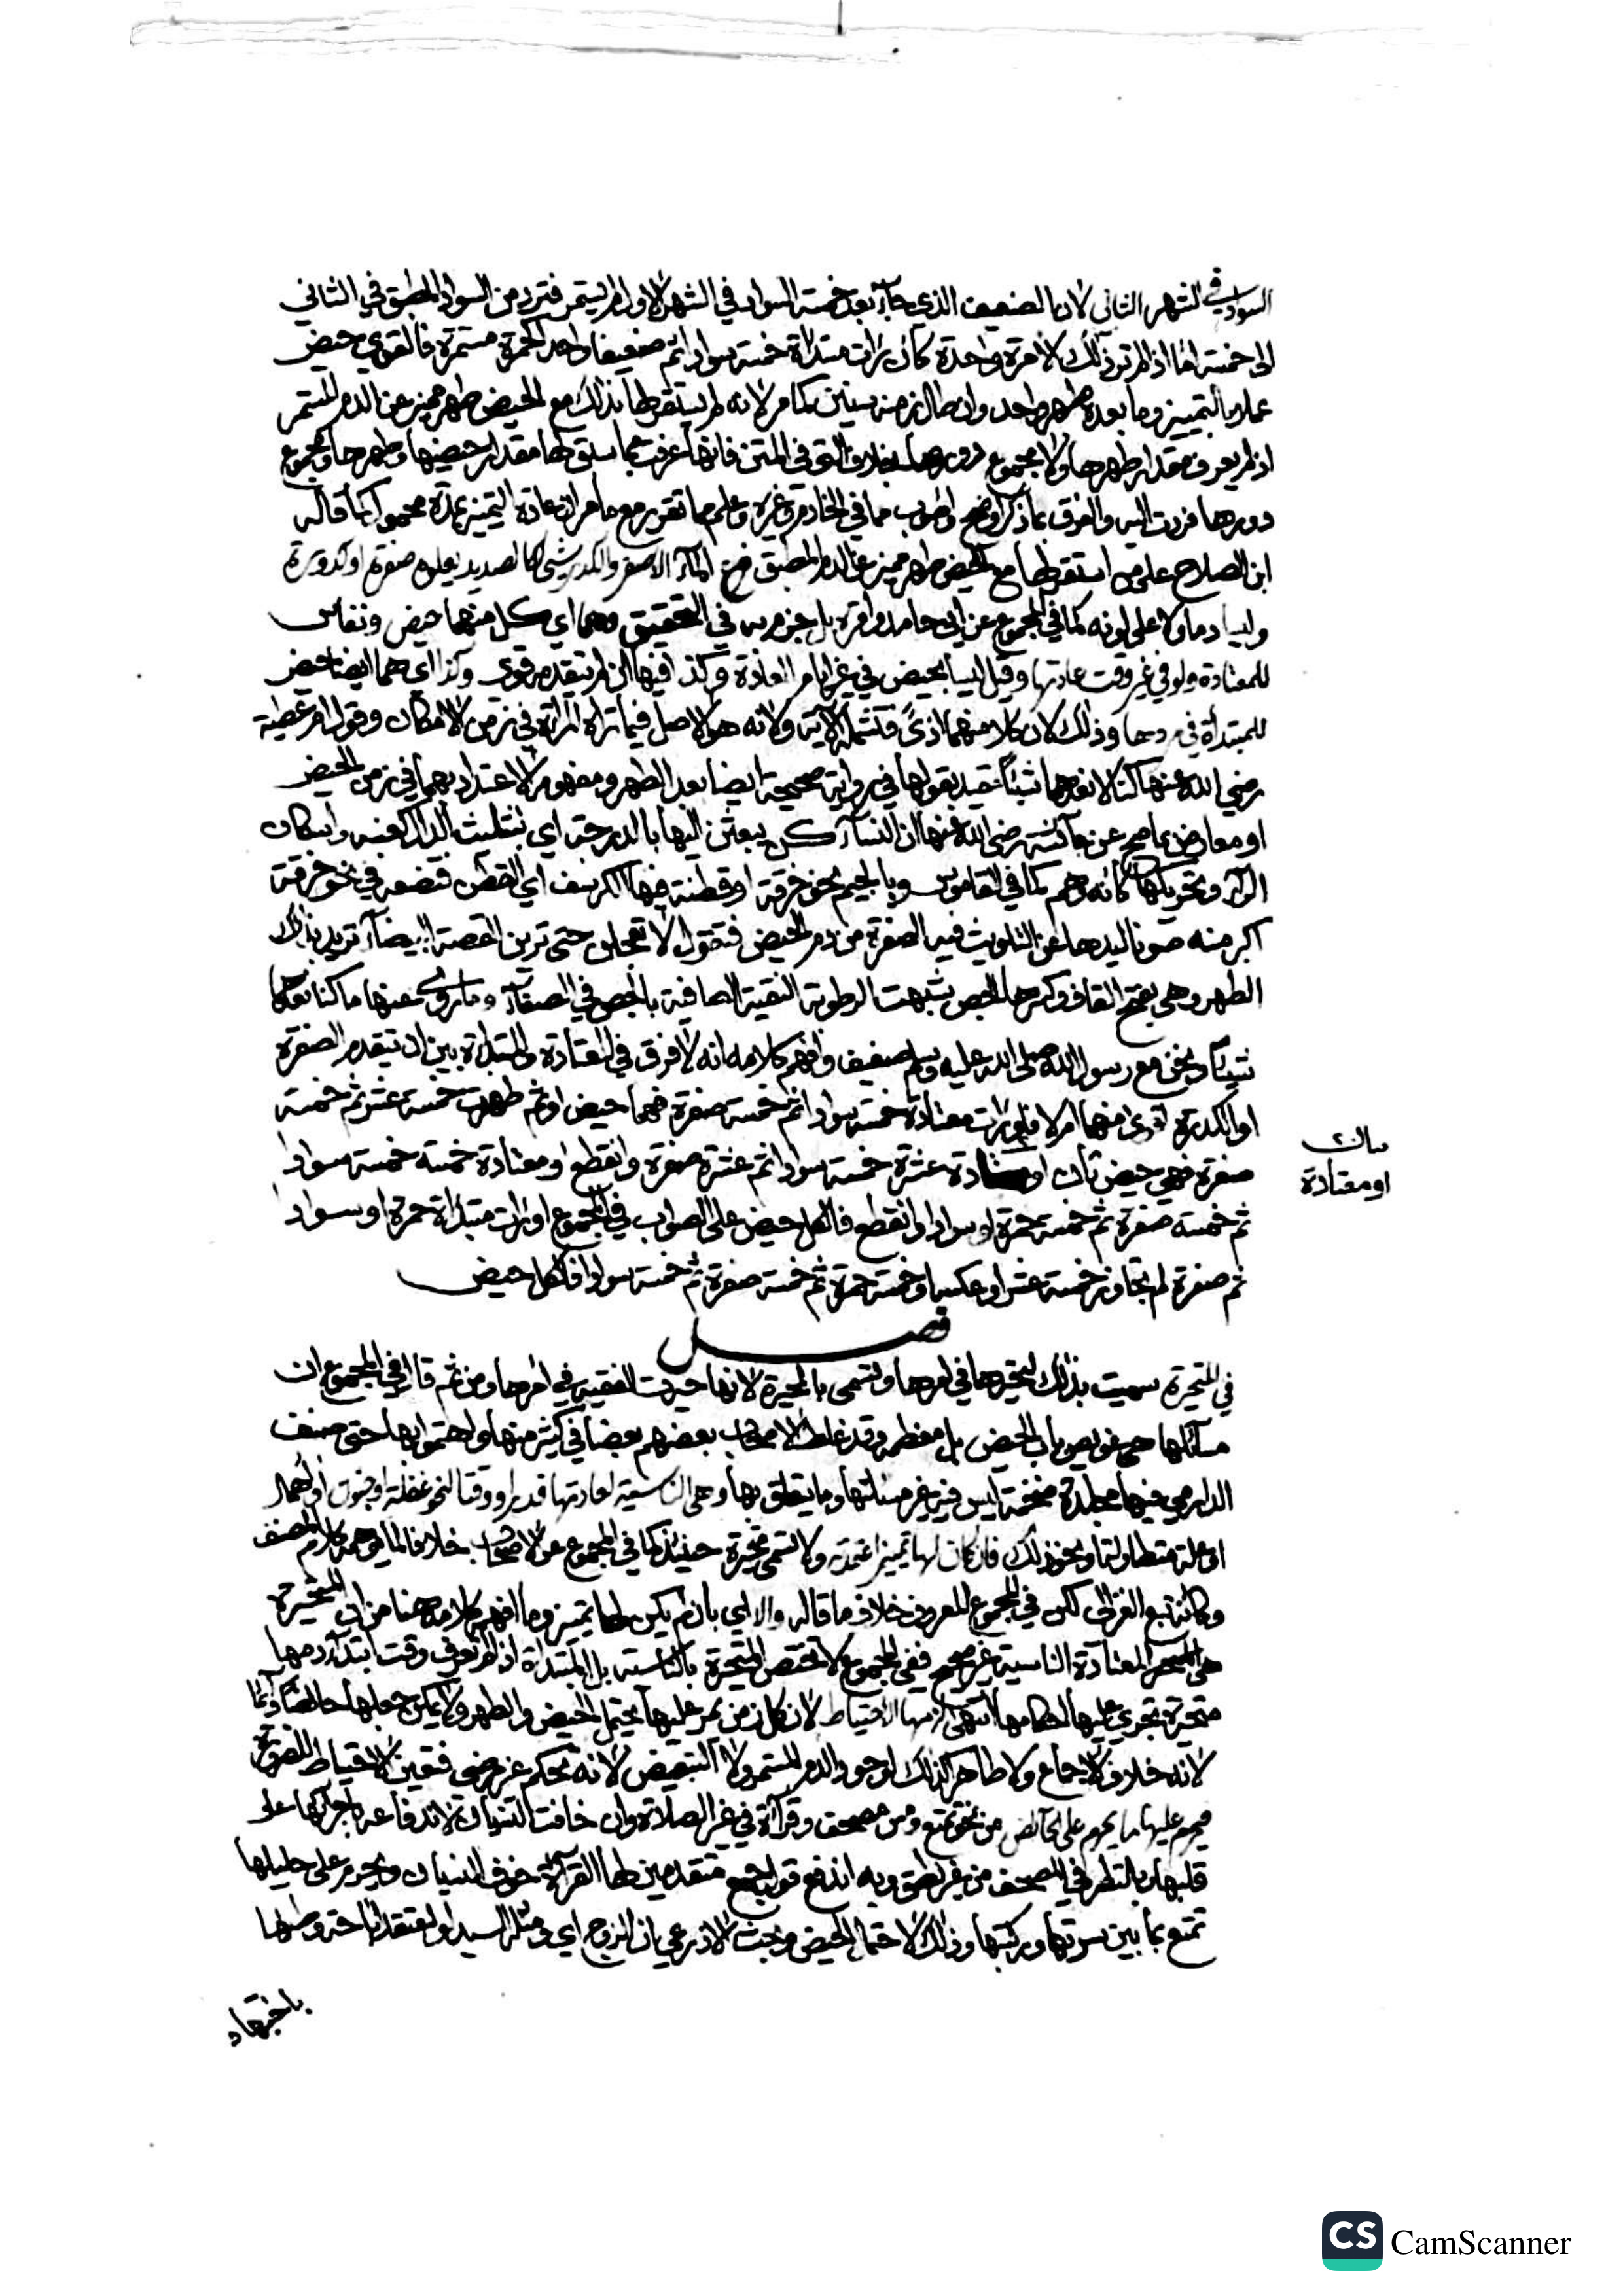 السواد في الشهر الثاني لان الضعيف الذي جاء بعد خمسة السواد في الشهر الاول لم يستمر فترد من السواد المطبق في الثاني
الى خمسة اما اذا لم تر ذلك الا مرة واحدة كان رات مبتداة خمسة سوادا ثم ضعيفا واحد الحمرة مستمرة فالقوي حيض
عملا بالتمييز وما بعده طهر واحد وان طال زمنه سنين كما مر لانه لم يستقر لها بذلك مع الحيض طهر مميز عن الدم المستمر
اذ لم يعرف مقدار طهرها ولا مجموع دورها بخلاف التي في المتن فانها عرفت بما سبق لها مقدار حيضها وطهرها ومجموع
دورها فردت اليه والفرق بما ذكر اوضح واصوب مما في الخادم وغيره وعلم مما تقرر مع ما مر ان عادة التمييز
ابن الصلاح على من استقر لها مع الحيض طهر مميز عن الدم المطبق الماء الاصفر والكدر شيء كالصديد يعلوه صفرة او كدورة
وليسا دما ولا على لونه كما في المجموع عن ابي حامد بل جزم به في التحقيق وهما اي كل منهما حيض ونفاس
للمعتادة ولو في غير وقت عادتها وقيل ليسا بحيض في غير ايام العادة وكذا فيها ان لم يتقدم قوي وكذا اي هما ايضا حيض
للمبتدأة في دورها وذلك لان كلا منهما اذى فتشمله الآية ولانه هو الاصل فيما تراه المراة في زمن الامكان وقول ام عطية
رضي الله عنها كنا لا نعدهما شيئا مقيد بقولها في رواية صحيحة ايضا بعد الطهر ومفهومه الاعتداد بهما في زمن الحيض
او معارض بما صح عن عائشة رضي الله عنها ان النساء كن يبعثن اليها بالدرجة اي بتثليث الدال وباسكان
الراء وتحريكها كانه وهم كما في القاموس وبالجيم نحو خرقة او قطنة فيها الكرسف اي القطن فتضعه في نحو خرقة
اكبر منه صونا ليدها عن التلويث فيه الصفرة من دم الحيض فتقول لا تعجلن حتى ترين القصة البيضاء تريد بذلك
الطهر وهي بفتح القاف وكسرها الجص شبهت الرطوبة النقية الصافية بالجص في الصفاء وما روي عنها ما كنا نعدها
شيئا ونحن مع رسول الله صلى الله عليه وسلم ضعيف وافهم كلامه انه لا فرق في المعتادة والمبتداة بين ان يتقدم الصفرة
او الكدرة اقوى منهما ام لا فلو رات معتادة خمسة سوادا ثم خمسة صفرة فهما حيض او ثم طهرت خمسة عشر ثم خمسة
صفرة فهي حيض ثان او عشرة خمسة سوادا ثم عشرة صفرة وانقطع او معتادة خمسة خمسة سوادا
ثم خمسة صفرة ثم خمسة حمرة او سوادا وانقطع فالكل حيض على الصواب في المجموع او رات مبتداة حمرة او سوادا
ثم صفرة لم تجاوز خمسة عشر او عكسه او خمسة حمرة ثم خمسة صفرة ثم خمسة سوادا فالكل حيض
او معتادة
فصل
في المتحيرة سميت بذلك لتحيرها في امرها وتسمى بالمحيرة لانها حيرت الفقيه في امرها ومن ثم قال في المجموع ان
مسائلها هي عويص باب الحيض بل معظمه وقد غلط الاصحاب بعضهم بعضا في كثير منها واهتموا بها حتى صنف
الدارمي فيها مجلدة ضخمة ليس فيه غير مسئلتها وما يتعلق بها وهي الناسية لعادتها قدرا ووقتا لنحو غفلة او جنون او اهمال
او علة متطاولة او نحو ذلك فان كان لها تمييز اعتمدته ولا تسمى متحيرة حينئذ كما في المجموع عن الاصحاب خلافا لما يوهمه كلام المصنف
وكانه تبع الغزالي لكن في المجموع المعروف خلاف ما قاله والا اي بان لم يكن لها تمييز وما افهمه كلامه هنا من ان المتحيرة
هي المعتادة الناسية غير صحيح ففي المجموع لا تختص المتحيرة بالناسية بل المبتداة اذا لم تعرف وقت ابتداء دمها
متحيرة تجري عليها احكامها انتهى لزمها الاحتياط لان كل زمن يمر عليها يحتمل الحيض والطهر ولا يمكن جعلها حائضا دائما
لانه خلاف الاجماع ولا طاهرا كذلك لوجود الدم المستمر ولا التبعيض لانه تحكم غير مرضي فتعين الاحتياط للضرورة
فيحرم عليها ما يحرم على الحائض من نحو تمتع ومس مصحف وقراءة في غير الصلاة وان خافت النسيان لاندفاعه باجرائها على
قلبها وبالنظر في المصحف من غير نطق وبه اندفع قول جمع متقدمين لها القراءة خوف النسيان ويحرم على حليلها
تمتع بما بين سرتها وركبتها وذلك لاحتمال الحيض وبحث الاذرعي بان الزوج اي ومثله السيد لو اعتقد اباحة وطئها
باجتهاد
CS CamScanner